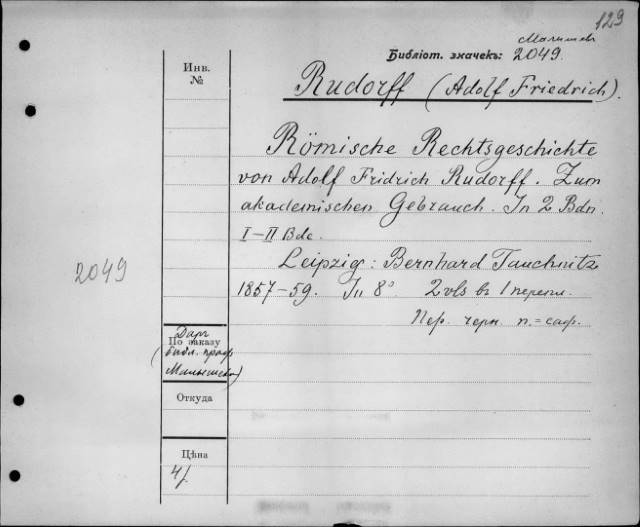 129
Малышев
Библіот. значекъ: 2049.
Инв.
№
Rudorff (Adolf Friedrich).
Römische Rechtsgeschichte
von Adolf Fridrich Rudorff. Zum
akademischen Gebrauch. In 2 Bdn.
I-II Bde.
2049
Leipzig: Bernhard Tauchnitz
1857-59. In 8° 2 vls въ 1 перепл.
Пер. черн. п.=саф.
Даръ
По заказу
(библ. проф.
Малышева)
Откуда
Цѣна
4/